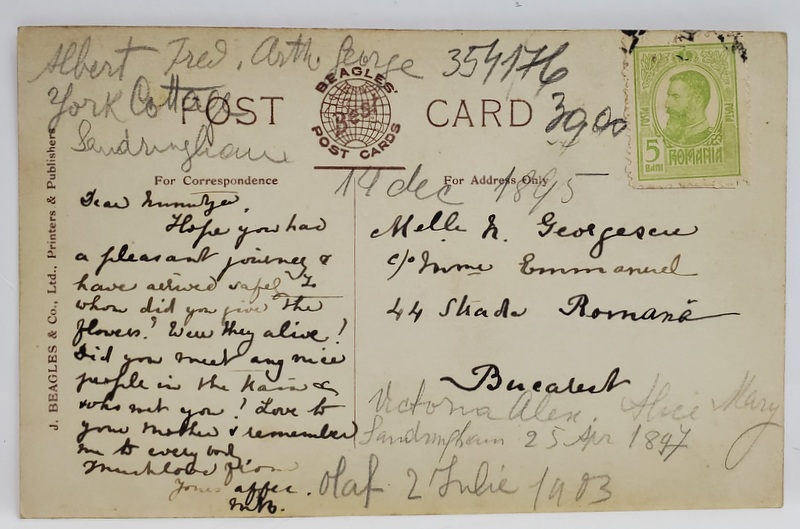 Albert Fred. Arth. George 354176
York Cottage
Sandringham
POST CARD
BEAGLES'
Best
POST CARDS
5
BANI
ROMANIA
14 dec 1895
For Correspondence
For Address Only
J. BEAGLES & Co., Ltd., Printers & Publishers
Dear
Hope you had
a pleasant journey &
have arrived safely. To
whom did you give the
flowers? Were they alive?
Did you meet any nice
people in the train &
who met you? Love to
your mother & remember
me to every
Much love from
Yours affec.
Melle N. Georgescu
c/o Mme Emmanuel
44 Strada Romană
Bucarest
Victoria Alex. Alice Mary
Sandringham 25 Apr 1897
Olaf 2 Iulie 1903